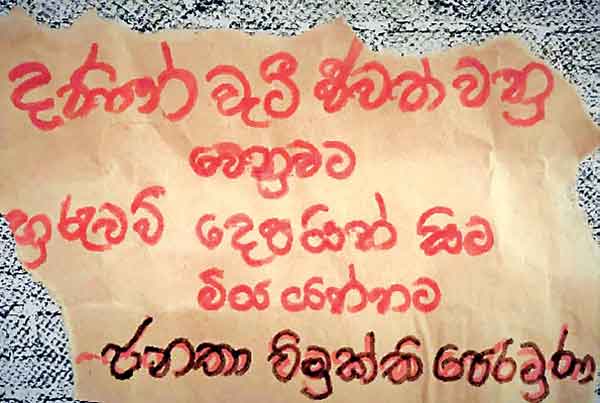 දණින් වැටී ජීවත් වනු
වෙනුවට
හුරුවව් දෙපයින් සිට
මිය යන්නට
- ජනතා විමුක්ති පෙරමුණ